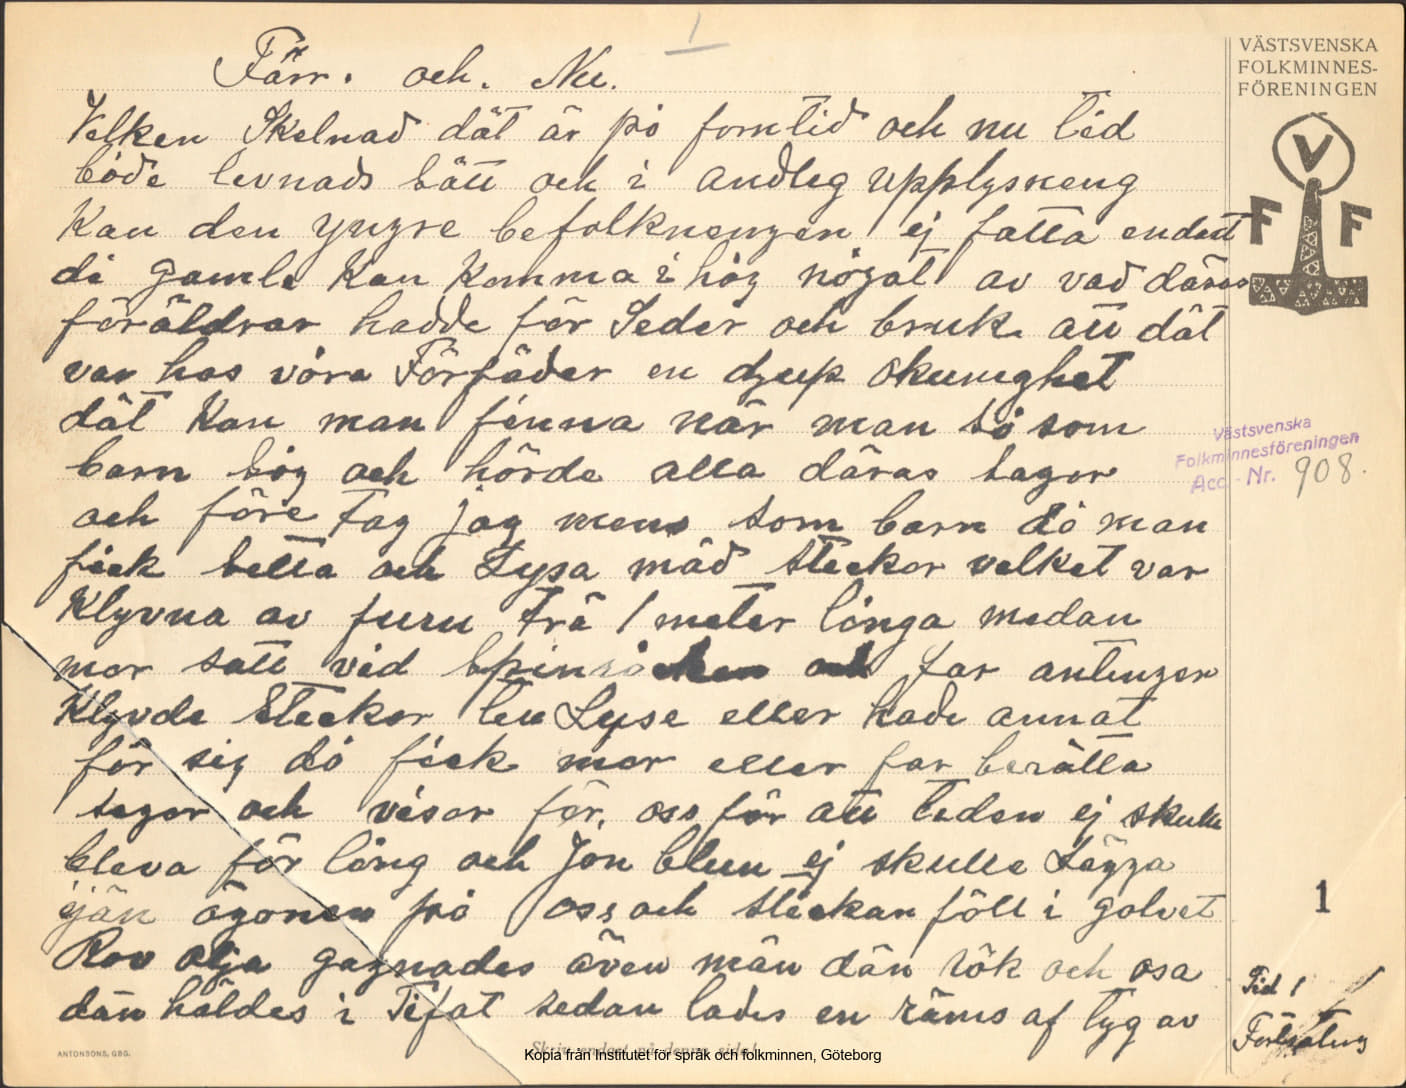 1
Färr. och. Nu.
Velken Skelnad dät är på forntid och nu tid
både levnads sätt och i andleg upplysneng
Kan den yngre befolknengen ej fatta endast
di gamle kan komma i håg någat av vad däras
föräldrar hadde för Seder och bruk att dät
var hos våra Förfäder en djup okunighet
dät kan man finna när man så som
barn såg och hörde alla däras sagor
och före tag jag mens som barn då man
fick setta och Lysa mäd steckor velket var
Klyvna av furu trä 1 meter långa medan
mor satt vid Spinråcken och far antingen
Klyvde Steckor teu Lyse eller hade annat
för sig då fick mor eller far berätta
sagor och visor för, oss för att tiden ej skulle
bleva för lång och Jon blun ej skulle Lägga
ijän ögonen på oss och steckan föll i golvet
Rov olja gagnades även män dän rök och osa
dän häldes i Tefat sedan lades en räms af tyg av
VÄSTSVENSKA
FOLKMINNES-
FÖRENINGEN
V
F F
Västsvenska
Folkminnesföreningen
Acc. - Nr. 908.
1
Sid 1
ANTONSONS, GBG.
Skriv endast på denna sida!
Kopia från Institutet för språk och folkminnen, Göteborg